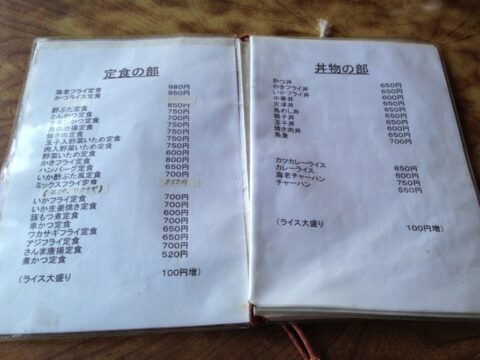 定食の部
海老フライ定食 980円
かつライス定食 950円
酢ぶた定食 850円
とんかつ定食 750円
750円
鳥の唐揚定食 700円
焼き肉定食 750円
玉子入野菜いため定食 750円
肉入野菜いため定食 750円
野菜いため定食 600円
かきフライ定食 800円
ハンバーグ定食 650円
いか酢ぶた風定食 700円
ミックスフライ定食 850円
いかフライ定食 700円
いか生姜焼き定食 700円
豚もつ煮定食 600円
串かつ定食 700円
ワカサギフライ定食 650円
アジフライ定食 650円
さんま唐揚定食 700円
東かつ定食 520円
(ライス大盛り 100円増)
丼物の部
かつ丼 650円
かきフライ丼 650円
いかフライ丼 600円
中華丼 650円
天津丼
鳥めし丼
親子丼
玉子丼
焼き肉丼
カツカレーライス 850円
カレーライス 600円
海老チャーハン 750円
チャーハン 550円
(ライス大盛り 100円増)